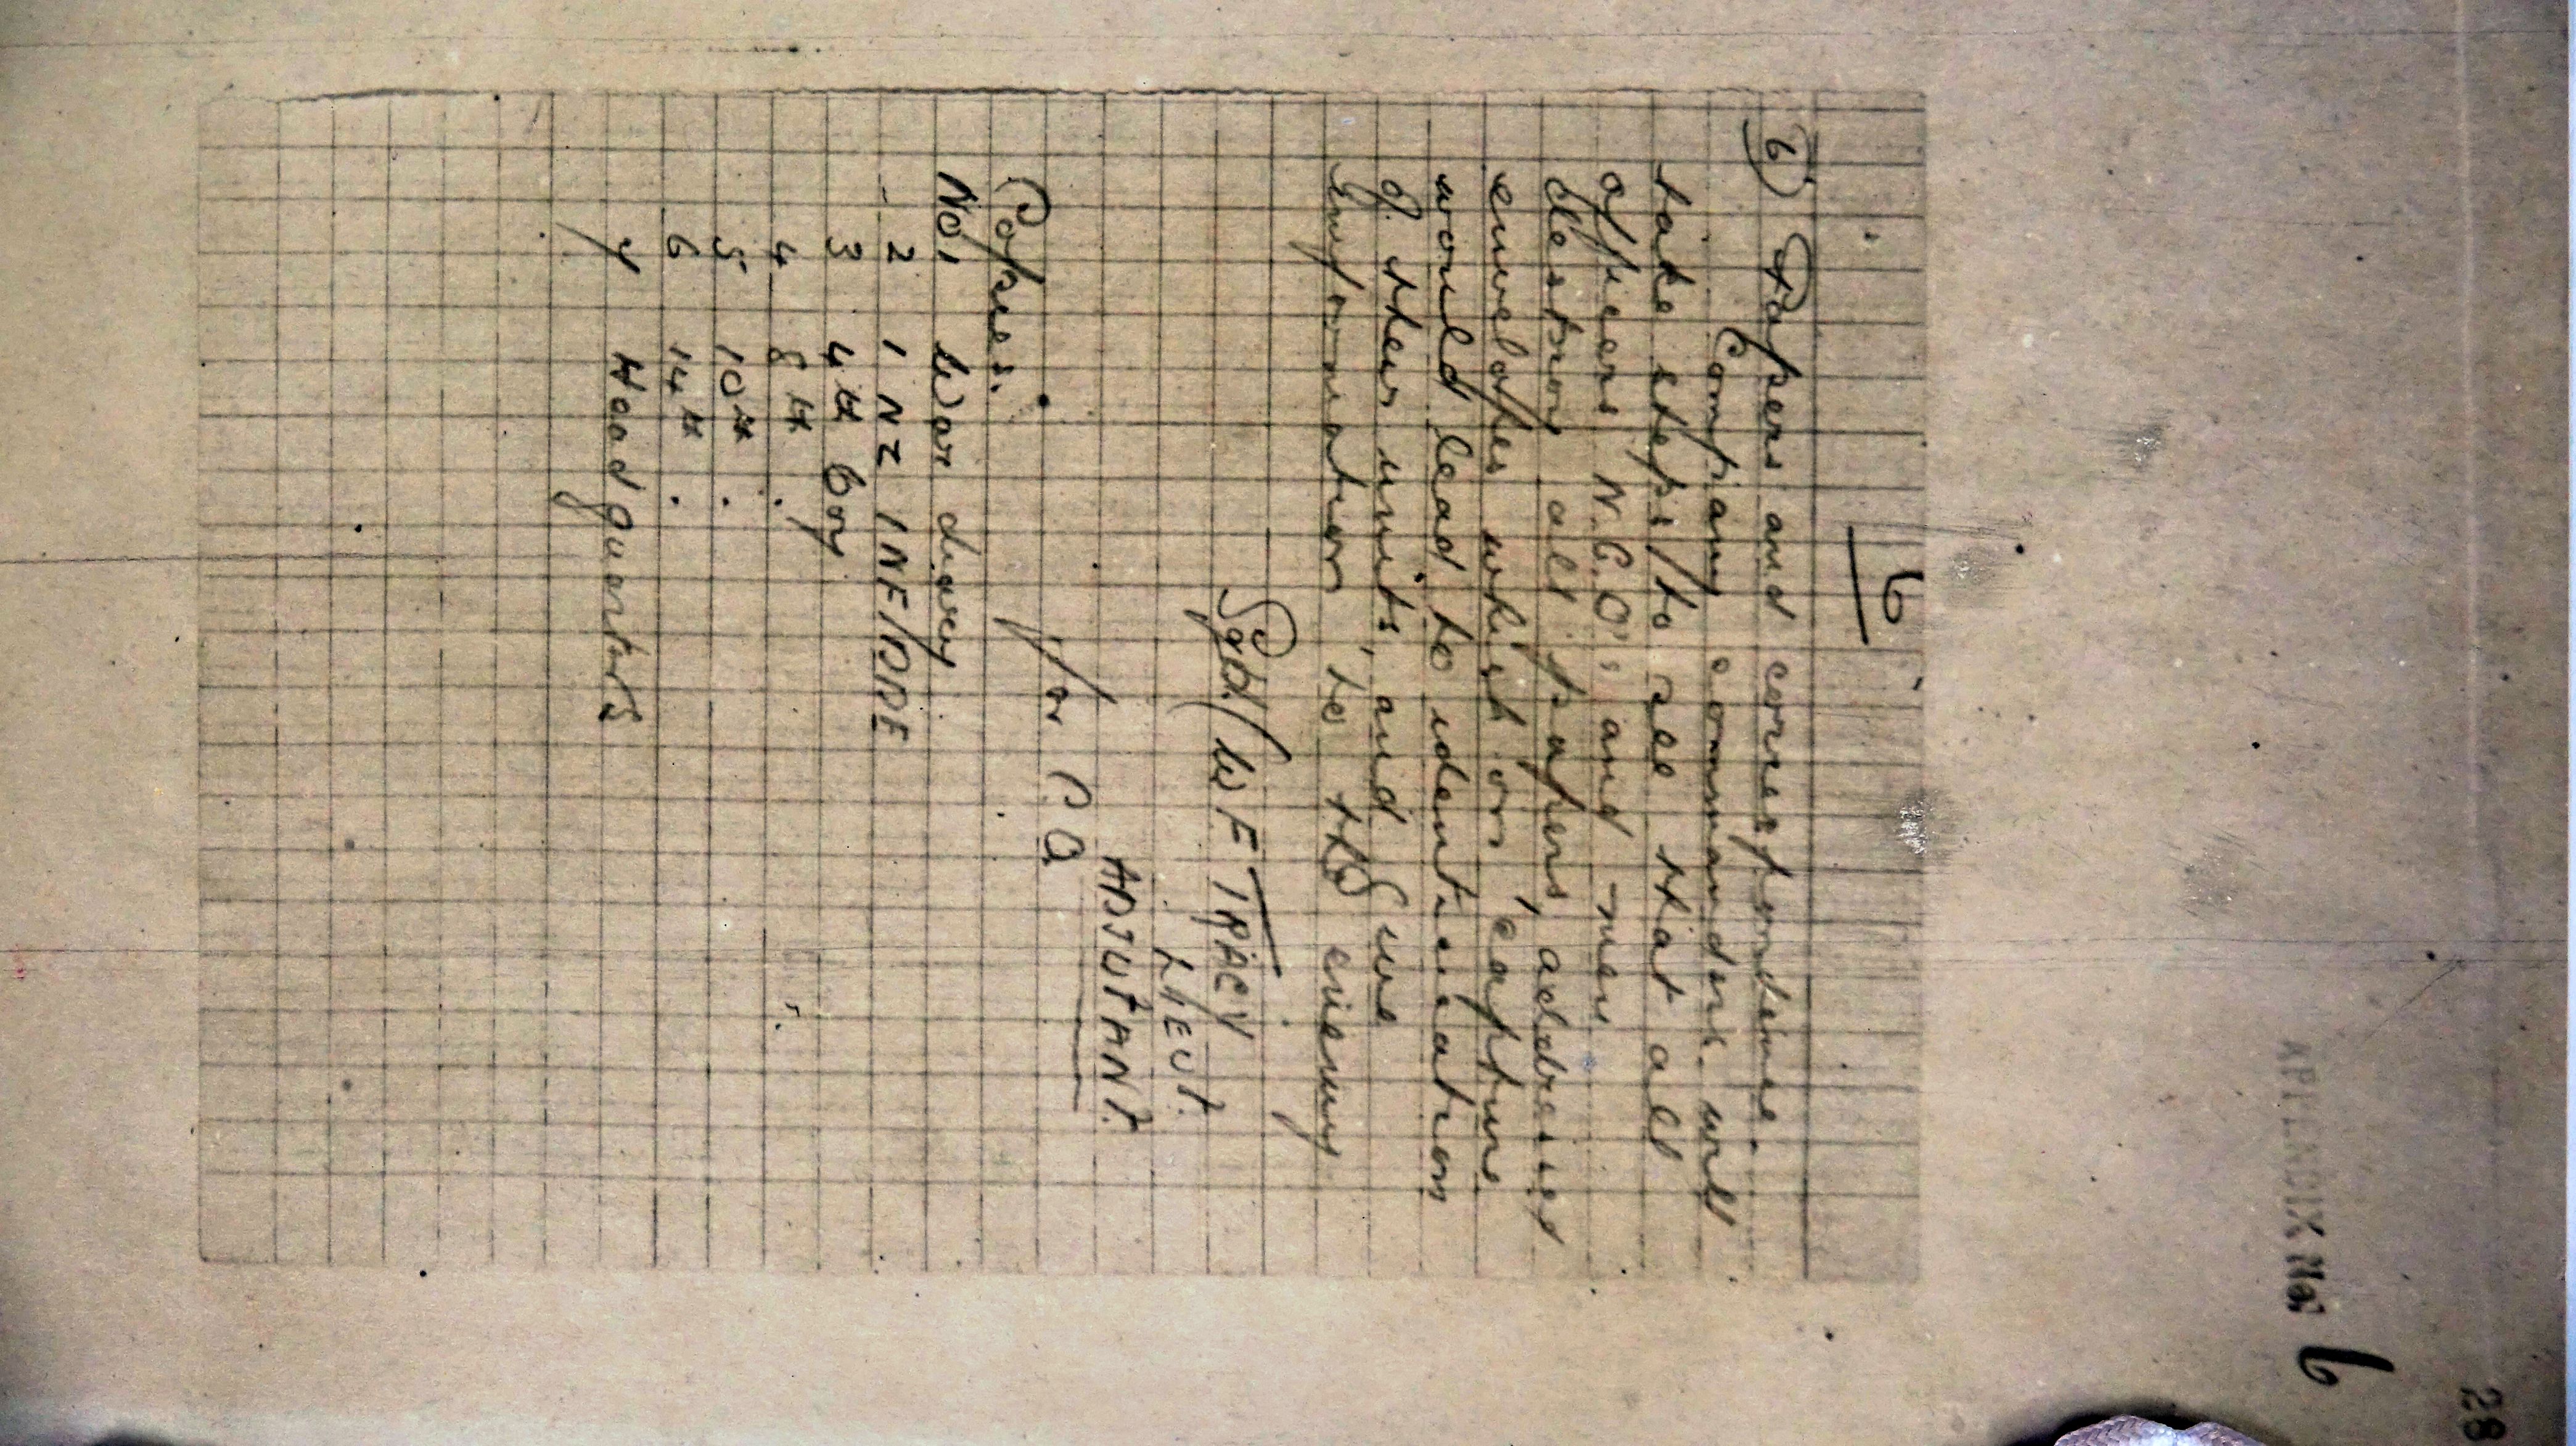 28
APPENDIX No. 6
6
6) Papers and correspondence.
Company commanders will
take steps to see that all
officers N.C.O's and men
destroy all papers, addresses
envelopes which on capture
would lead to identification
of their units, and give
information to the enemy
Sgd/ W F TRACY
LIEUT.
ADJUTANT.
for C O
Copies.
No. 1 War diary
2 1 NZ INF/BDE
3 4th Coy
4 8th "
5 10th "
6 14th "
7 Headquarters